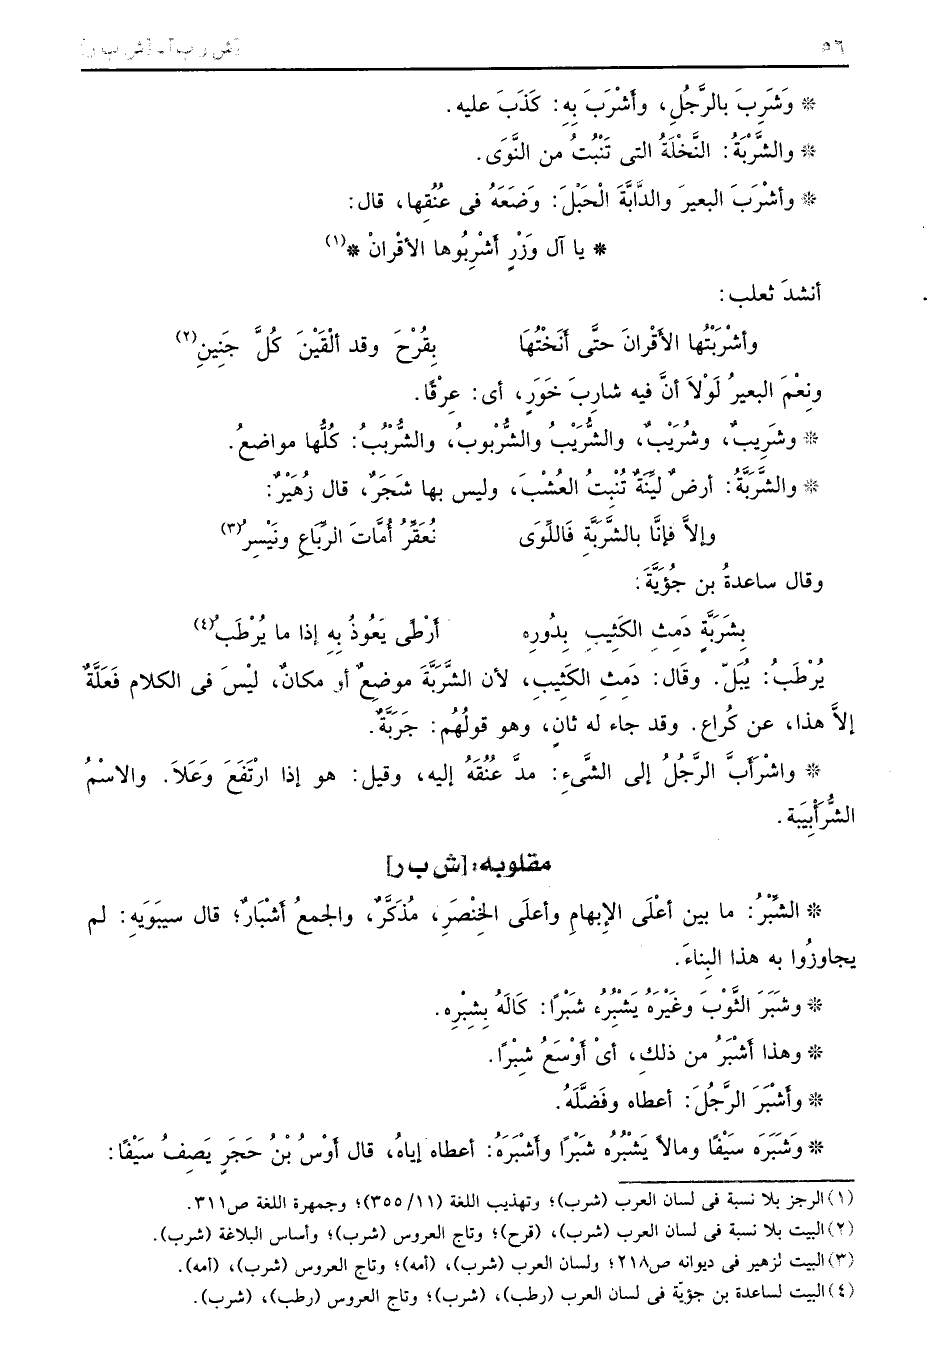 ٥٦ [ش ر ب] ـ [ش ب ر]
* وَشَرِبَ بالرَّجُلِ، وأَشْرَبَ بِهِ: كَذَبَ عليه.
* والشَّرْبَةُ: النَّخْلَةُ التى تَنْبُتُ من النَّوَى.
* وأشْرَبَ البعيرَ والدَّابَّةَ الْحَبْلَ: وَضَعَهُ فى عُنُقِها، قال:
* يا آل وَزْرٍ أَشْرِبُوها الأقْرانْ *(١)
أنشدَ ثعلب:
وأشْرَبْتُها الأقْرانَ حتَّى أَنَخْتُهَا بِقُرْحَ وقد ألْقَيْنَ كُلَّ جَنِينِ(٢)
ونِعْمَ البعيرُ لَوْلاَ أنَّ فيه شارِبَ خَوَرٍ، أى: عِرْقًا.
* وشَرِيبٌ، وشُرَيْبٌ، والشُّرَيْبُ والشُّرْبوبُ، والشُّرْبُبُ: كلُّها مواضعُ.
* والشَّرَبَّةُ: أرضٌ لَيِّنَةٌ تُنْبِتُ العُشْبَ، وليس بها شَجَرٌ، قال زُهَيْرٌ:
وإلاَّ فإنَّا بالشَّرَبَّةِ فَاللِّوَى نُعَقِّرُ أُمَّاتَ الرِّبَاعِ ونَيْسِرُ(٣)
وقال ساعدةُ بن جُؤَيَّةَ:
بِشَرَبَّةٍ دَمِثِ الكَثِيبِ بِدُورِه أَرْطًى يَعُوذُ بِهِ إذا ما يُرْطَبُ(٤)
يُرْطَبُ: يُبَلّ. وقَال: دَمِثِ الكَثِيبِ، لأن الشَّرَبَّةَ موضِعٌ أو مكانٌ، ليْسَ فى الكلام فَعَلَّةٌ
إلاَّ هذا، عن كُراع. وقد جاء له ثانٍ، وهو قولُهُم: جَرَبَّةٌ.
* واشْرَأَبَّ الرَّجُلُ إلى الشَّىءِ: مدَّ عُنُقَهُ إليه، وقيل: هو إذا ارْتَفَعَ وَعَلاَ. والاسْمُ
الشُّرَأْبِيبَة.
مقلوبه: [ش ب ر]
* الشِّبْرُ: ما بين أعْلَى الإبهامِ وأعلَى الخِنْصَرِ، مُذَكَّرٌ، والجمعُ أشْبَارٌ؛ قال سيبَوَيه: لم
يجاوزُوا به هذا البِناءَ.
* وشَبَرَ الثَّوْبَ وغَيْرَهُ يَشْبُرُه شَبْرًا: كَالَهُ بِشِبْرِه.
* وهذا أَشْبَرُ من ذلكِ، أىْ أَوْسَعُ شِبْرًا.
* وأَشْبَرَ الرَّجُلَ: أعطاه وفَضَّلَهُ.
* وَشَبَرَه سَيْفًا ومالاً يَشْبُرُه شَبْرًا وأشْبَرَهُ: أعطاه إياهُ، قال أَوْسُ بْنُ حَجَرٍ يَصِفُ سَيْفًا:
(١) الرجز بلا نسبة فى لسان العرب (شرب)؛ وتهذيب اللغة (٣٥٥/١١)؛ وجمهرة اللغة ص٣١١.
(٢) البيت بلا نسبة فى لسان العرب (شرب)، (قرح)؛ وتاج العروس (شرب)؛ وأساس البلاغة (شرب).
(٣) البيت لزهير فى ديوانه ص٢١٨؛ ولسان العرب (شرب)، (أمه)؛ وتاج العروس (شرب)، (أمه).
(٤) البيت لساعدة بن جؤيّة فى لسان العرب (رطب)، (شرب)؛ وتاج العروس (رطب)، (شرب).